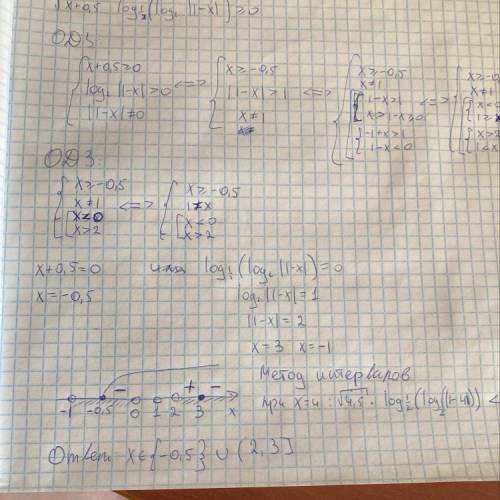 √x+0,5 log½(log₂ |1-x|) ≥ 0
ОДЗ:
{ x+0,5≥0
log₂ |1-x|>0
|1-x|≠0
<=> { x≥-0,5
|1-x|>1
x≠1
<=> { x≥-0,5
x≠1
[ { 1-x>1
x>1-x≥0
{ -1+x>1
1-x<0
<=> { x≥-0,
x≠1
x<
1≥x
x>2
1<x
ОДЗ:
{ x≥-0,5
x≠1
[ x<0
x>2
<=> { x≥-0,5
1≠x
[ x<0
x>2
x+0,5=0 или log½(log₂ |1-x|)=0
x=-0,5 log₂|1-x|=1
|1-x|=2
x=3 x=-1
Метод интервалов
при x=4: √4,5 · log½(log₂(|1-4|)) <
- + -
-1 -0,5 0 1 2 3 x
Ответ: x∈{-0,5} ∪ (2,3]